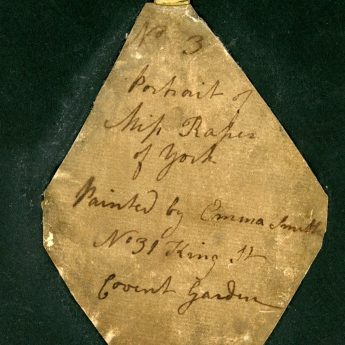 No. 3
Portrait of
Miss Raper
of York
Painted by Emma Smith
No 31 King St
Covent Garden